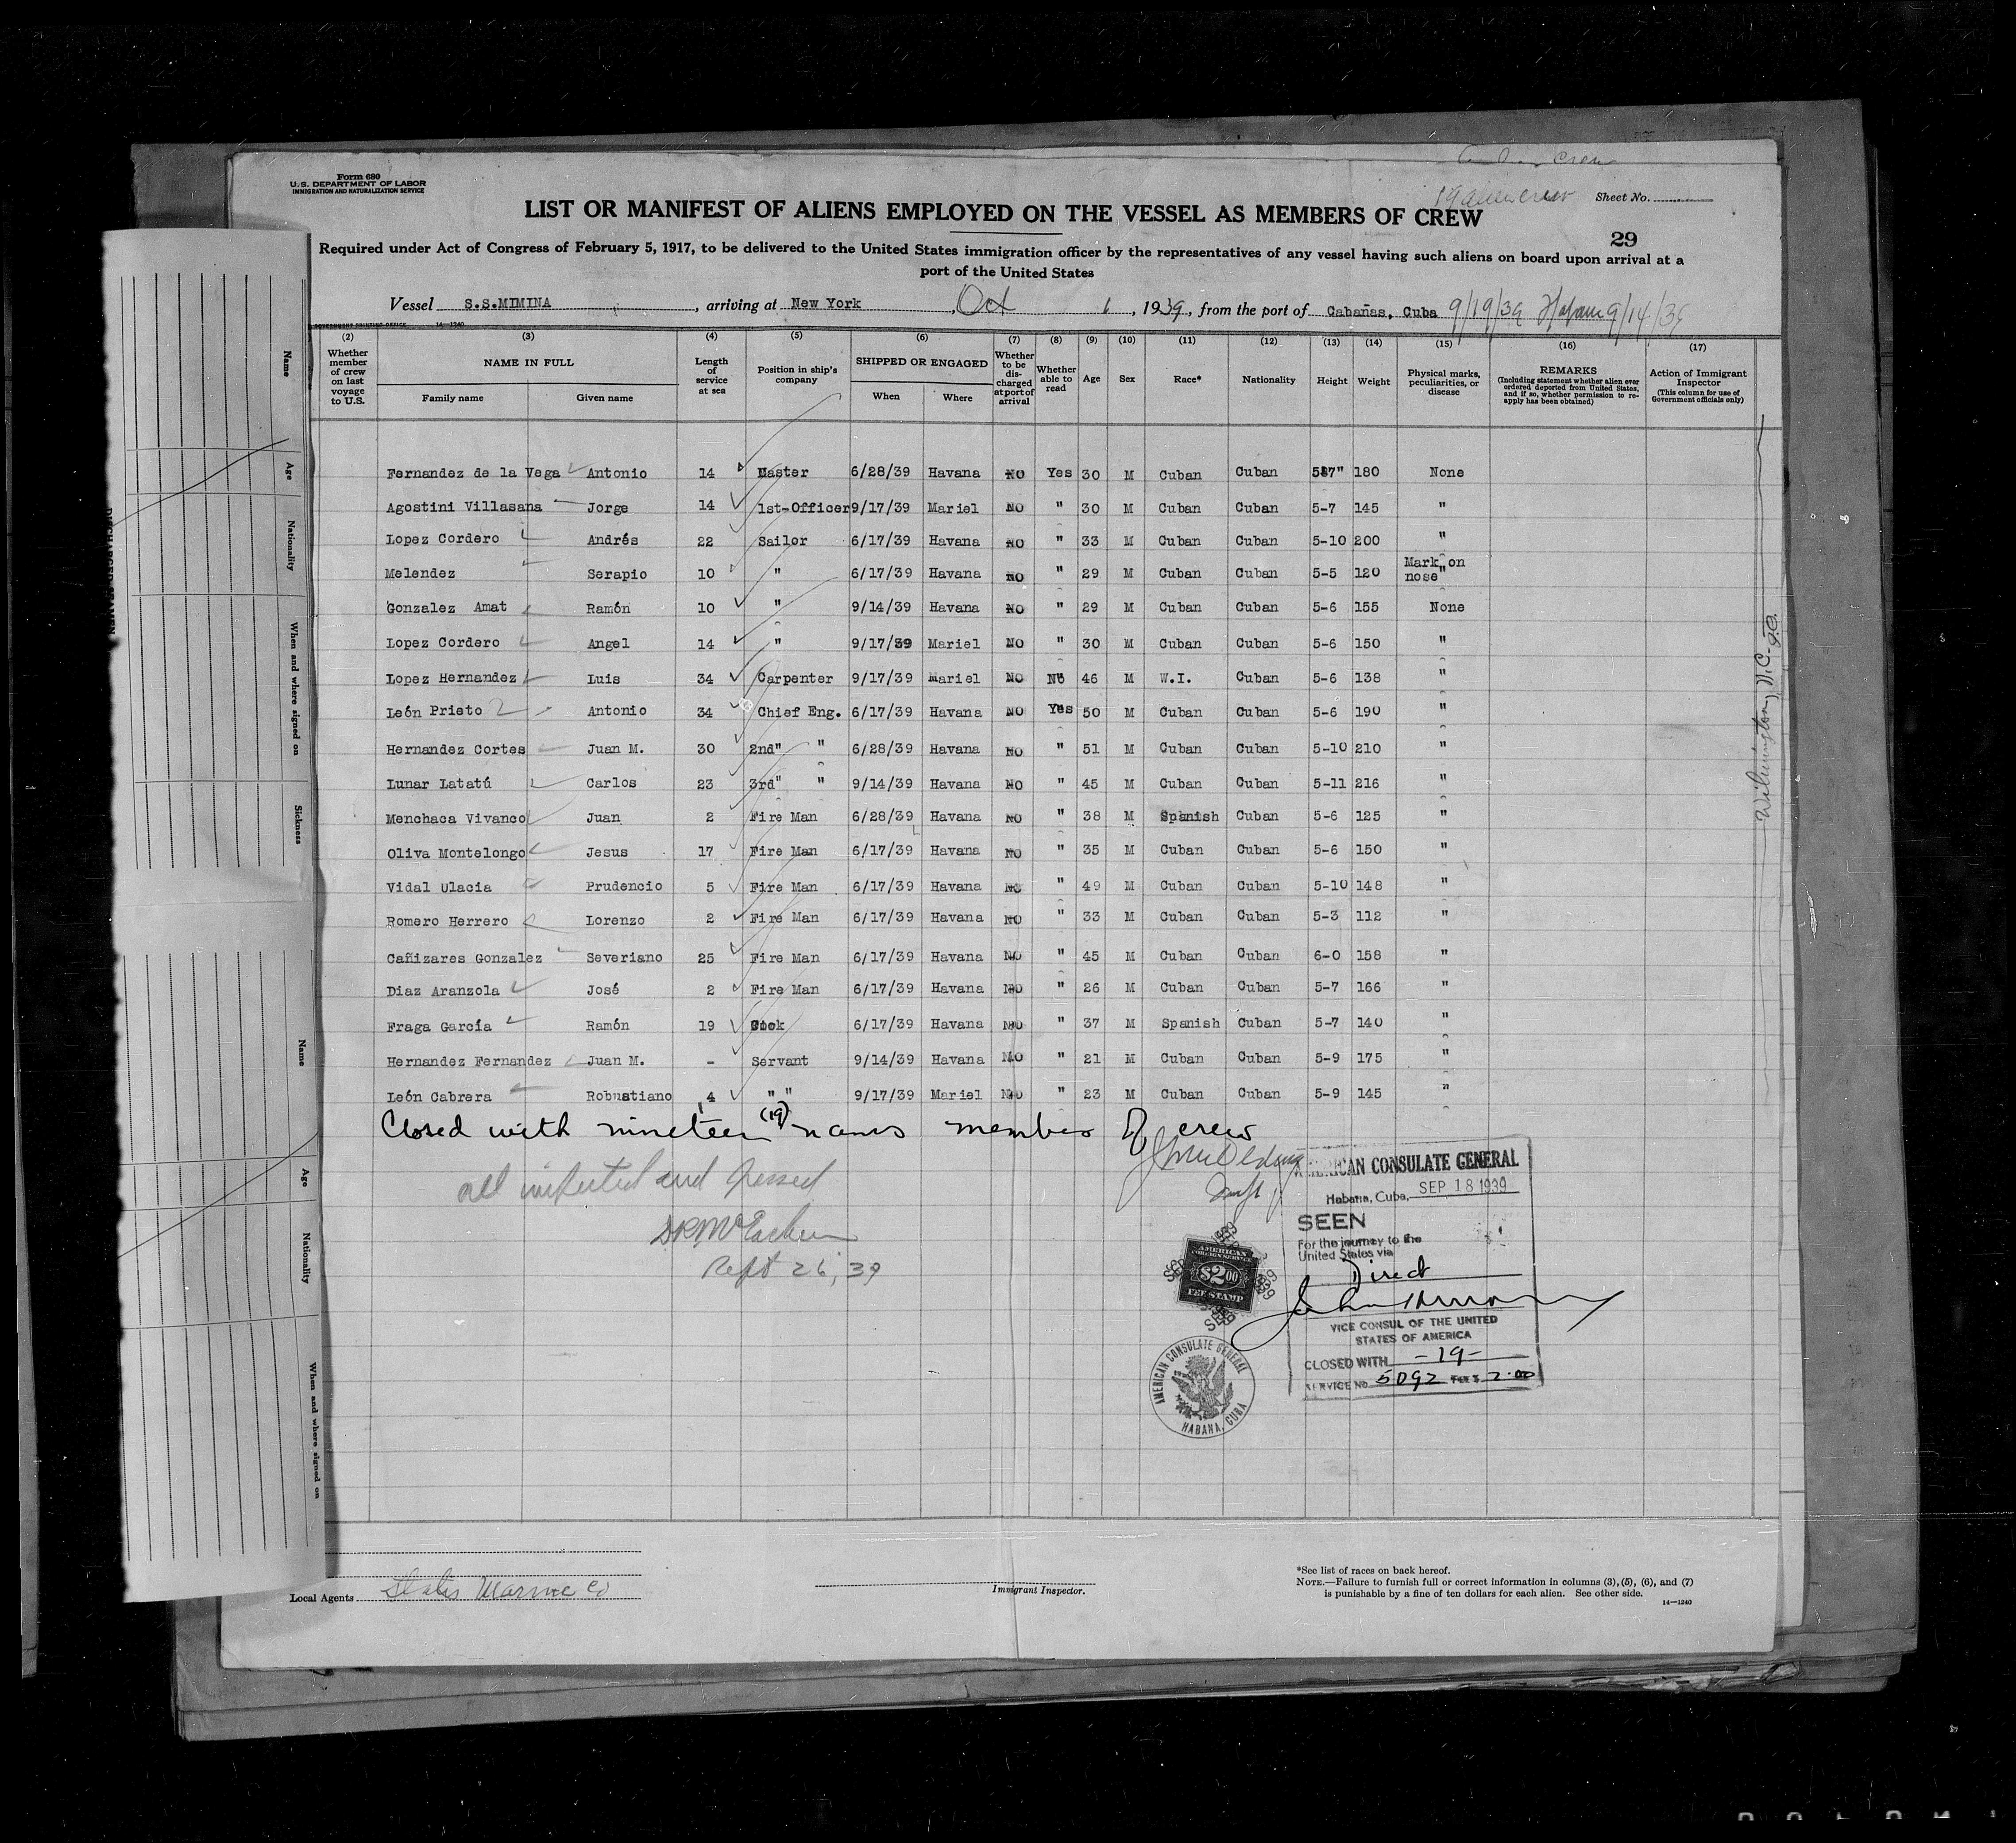 Form 680
U.S. DEPARTMENT OF LABOR
IMMIGRATION AND NATURALIZATION SERVICE
crew
19 alien crew
Sheet No.
LIST OR MANIFEST OF ALIENS EMPLOYED ON THE VESSEL AS MEMBERS OF CREW
29
Required under Act of Congress of February 5, 1917, to be delivered to the United States immigration officer by the representatives of any vessel having such aliens on board upon arrival at a
port of the United States
Vessel S.S.MIMINA, arriving at New York, Oct 1, 1939, from the port of Cabañas, Cuba 9/19/39 Havana 9/14/39
GOVERNMENT PRINTING OFFICE 14—1240
(2) (3) (4) (5) (6) (7) (8) (9) (10) (11) (12) (13) (14) (15) (16) (17)
Whether member of crew on last voyage to U.S.
NAME IN FULL
Family name Given name
Length of service at sea
Position in ship's company
SHIPPED OR ENGAGED
When Where
Whether to be discharged at port of arrival
Whether able to read
Age
Sex
Race*
Nationality
Height
Weight
Physical marks, peculiarities, or disease
REMARKS
(Including statement whether alien ever ordered deported from United States, and if so, whether permission to reapply has been obtained)
Action of Immigrant Inspector
(This column for use of Government officials only)
Fernandez de la Vega Antonio 14 Master 6/28/39 Havana No Yes 30 M Cuban Cuban 5'7" 180 None
Agostini Villasana Jorge 14 1st-Officer 9/17/39 Mariel No " 30 M Cuban Cuban 5-7 145 "
Lopez Cordero Andrés 22 Sailor 6/17/39 Havana No " 33 M Cuban Cuban 5-10 200 "
Melendez Serapio 10 " 6/17/39 Havana No " 29 M Cuban Cuban 5-5 120 Mark on nose"
Gonzalez Amat Ramón 10 " 9/14/39 Havana No " 29 M Cuban Cuban 5-6 155 None
Lopez Cordero Angel 14 " 9/17/39 Mariel No " 30 M Cuban Cuban 5-6 150 "
Lopez Hernandez Luis 34 Carpenter 9/17/39 Mariel No No 46 M W.I. Cuban 5-6 138 "
León Prieto 2 Antonio 34 Chief Eng. 6/17/39 Havana No Yes 50 M Cuban Cuban 5-6 190 "
Hernandez Cortes Juan M. 30 2nd" " 6/28/39 Havana No " 51 M Cuban Cuban 5-10 210 "
Lunar Latatú Carlos 23 3rd" " 9/14/39 Havana No " 45 M Cuban Cuban 5-11 216 "
Menchaca Vivanco Juan 2 Fire Man 6/28/39 Havana No " 38 M Spanish Cuban 5-6 125 "
Oliva Montelongo Jesus 17 Fire Man 6/17/39 Havana No " 35 M Cuban Cuban 5-6 150 "
Vidal Ulacia Prudencio 5 Fire Man 6/17/39 Havana No " 49 M Cuban Cuban 5-10 148 "
Romero Herrero Lorenzo 2 Fire Man 6/17/39 Havana No " 33 M Cuban Cuban 5-3 112 "
Cañizares Gonzalez Severiano 25 Fire Man 6/17/39 Havana No " 45 M Cuban Cuban 6-0 158 "
Diaz Aranzola José 2 Fire Man 6/17/39 Havana No " 26 M Cuban Cuban 5-7 166 "
Fraga García Ramón 19 Cook 6/17/39 Havana No " 37 M Spanish Cuban 5-7 140 "
Hernandez Fernandez Juan M. - Servant 9/14/39 Havana No " 21 M Cuban Cuban 5-9 175 "
León Cabrera Robustiano 4 " " 9/17/39 Mariel No " 23 M Cuban Cuban 5-9 145 "
Closed with nineteen (19) names members of crew
all inspected and passed
D.R. McEachern
Sept 26, 39
Wilmington, N.C.
AMERICAN CONSULATE GENERAL
Habana, Cuba, SEP 18 1939
SEEN
For the journey to the
United States via
Direct
VICE CONSUL OF THE UNITED
STATES OF AMERICA
CLOSED WITH -19-
SERVICE No 5092 FEE $ 2.00
AMERICAN
FOREIGN SERVICE
$2.00
FEE STAMP
AMERICAN CONSULATE GENERAL
HABANA, CUBA
Local Agents States Marine Co
Immigrant Inspector.
*See list of races on back hereof.
NOTE.—Failure to furnish full or correct information in columns (3), (5), (6), and (7)
is punishable by a fine of ten dollars for each alien. See other side.
14—1240
Name
Age
Nationality
When and where signed on
Sickness
Name
Age
Nationality
When and where signed on